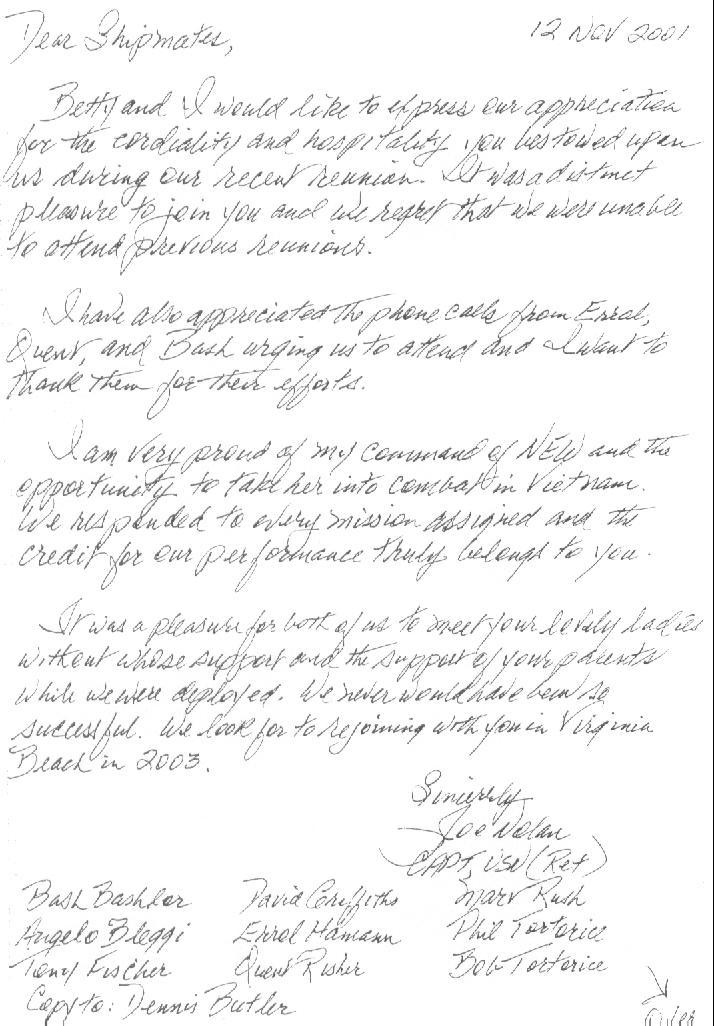 Dear Shipmates, 12 NOV 2001
Betty and I would like to express our appreciation
for the cordiality and hospitality you bestowed upon
us during our recent reunion. It was a distinct
pleasure to join you and we regret that we were unable
to attend previous reunions.
I have also appreciated the phone calls from Errol,
Quent, and Bash urging us to attend and I want to
thank them for their efforts.
I am very proud of my command of NEW and the
opportunity to take her into combat in Vietnam.
We responded to every mission assigned and the
credit for our performance truly belongs to you.
It was a pleasure for both of us to meet your lovely ladies
without whose support and the support of your parents
while we were deployed. We never would have been so
successful. We look for to rejoining with you in Virginia
Beach in 2003.
Sincerely
Joe Nolan
CAPT, USN (Ret)
Bash Bashlor David Griffiths Marv Rush
Angelo Bleggi Errol Hamann Phil Tortorice
Tony Fischer Quent Risher Bob Tortorice
Copy to: Dennis Butler
Over